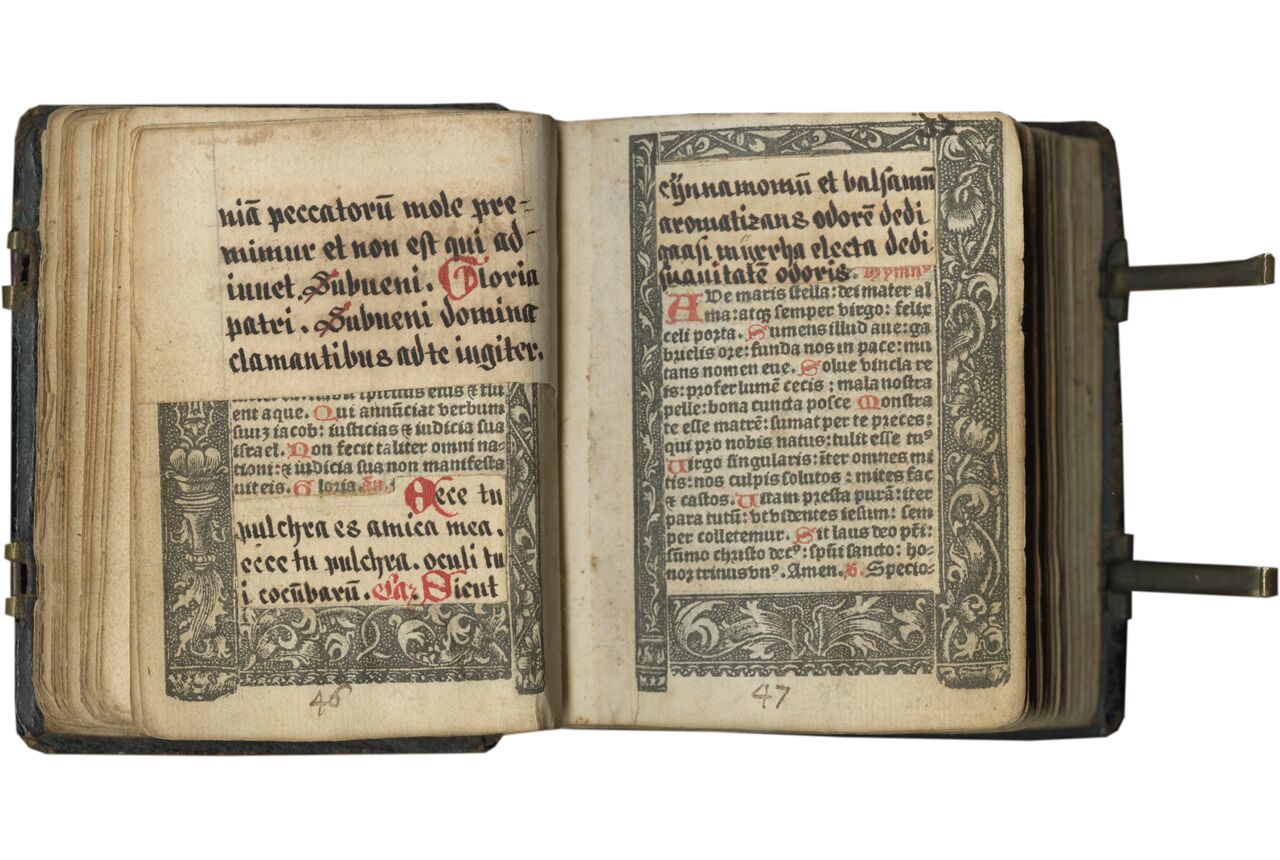 niā peccatorū mole pre-
mimur et non est qui ad-
iuuet. Subueni. Gloria
patri. Subueni domina
clamantibus ad te iugiter.
spiritus eius ⁊ flu
ent aque. Qui annūciat verbum
suuȝ iacob: iusticias ⁊ iudicia sua
israel. Non fecit taliter omni na-
tioni: ⁊ iudicia sua non manifesta
uit eis. Gloria Añ.
Ecce tu
pulchra es amica mea.
ecce tu pulchra. oculi tu
i colūbarū. Sicut
46
cÿnnamomū et balsamū
aromatizans odorē dedi
quasi mÿrrha electa dedi
suauitatē odoris. Hymnꝰ
AUe maris stella: dei mater al
ma: atqꝫ semper virgo: felix
celi porta. Sumens illud aue: ga
brielis ore: funda nos in pace: mu
tans nomen eue. Solue vincla re
is: profer lumē cecis: mala nostra
pelle: bona cuncta posce Monstra
te esse matrē: sumat per te preces:
qui pro nobis natus: tulit esse tuꝰ
Uirgo singularis: īter omnes mi
tis: nos culpis solutos: mites fac
⁊ castos. Uitam presta purā: iter
para tutū: vt videntes iesum: sem
per colletemur. Sit laus deo pr̄i:
sūmo christo decꝰ: spūi sancto: ho-
nor trinus vnꝰ. Amen. V. Specio-
47